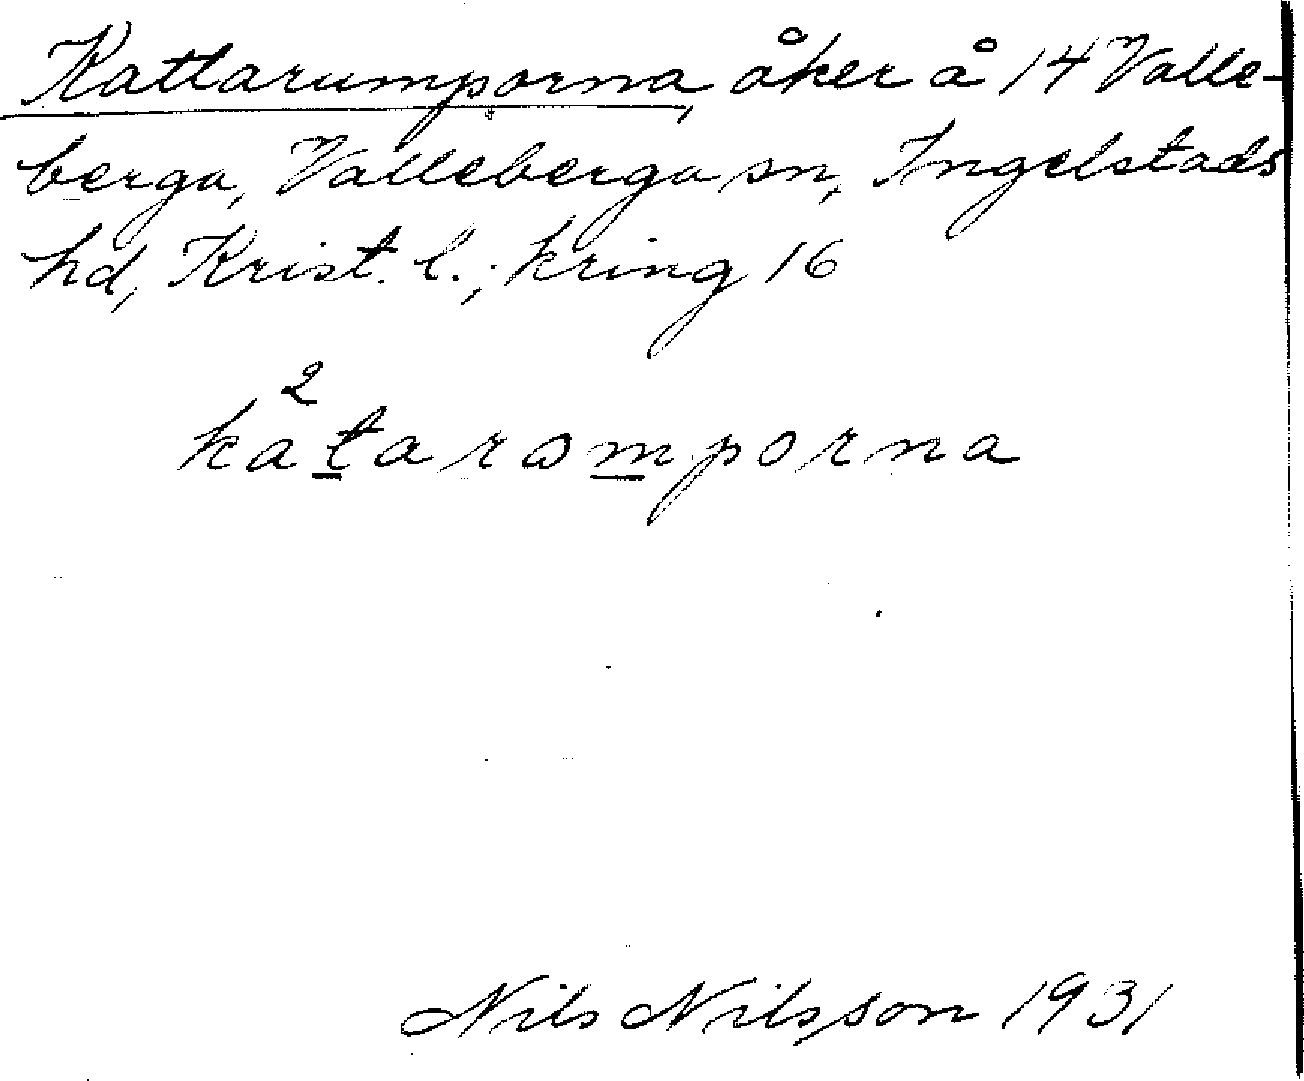 Kattarumporna, åker å 14 Valle-
berga, Valleberga sn, Ingelstads
hd, Krist. l.; kring 16
2
kataromporna
Nils Nilsson 1931